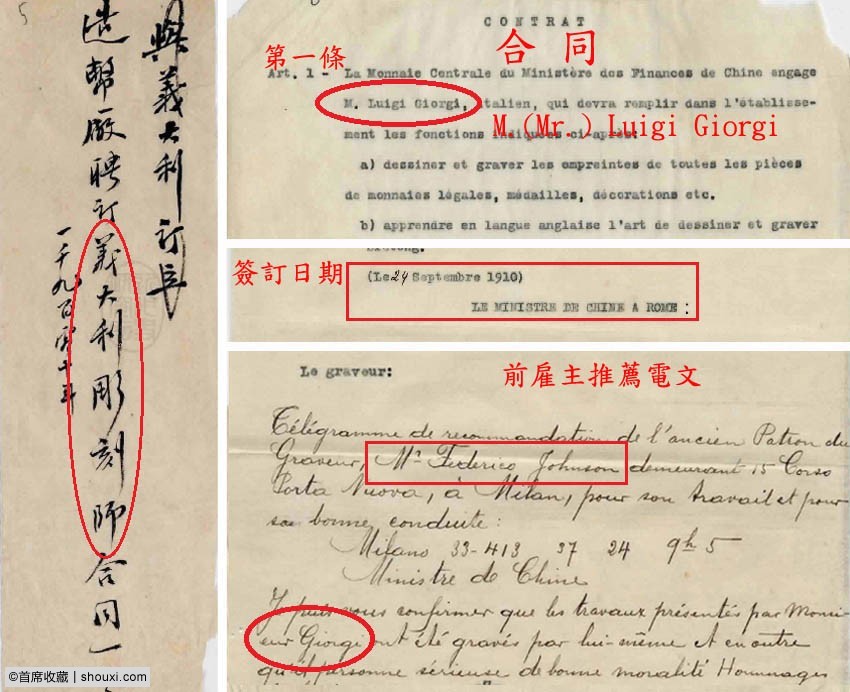 5
與義大利訂
造幣廠聘訂義大利彫刻師合同一
一千九百零十年
©首席收藏 | shouxi.com
CONTRAT
合同
第一條
Art. 1 - La Monnaie Centrale du Ministère des Finances de Chine engage
M. Luigi Giorgi, italien, qui devra remplir dans l'établisse-
ment les fonctions indiquées ci-après:
M.(Mr.) Luigi Giorgi
a) dessiner et graver les empreintes de toutes les pièces
de monnaies légales, médailles, décorations etc.
b) apprendre en langue anglaise l'art de dessiner et graver
簽訂日期
(Le 24 Septembre 1910)
LE MINISTRE DE CHINE A ROME :
Le graveur:
前雇主推薦電文
Télégramme de recommandation de l'ancien Patron du
Graveur, Mr Federico Johnson demeurant 15 Corso
Porta Nuova, à Milan, pour son travail et pour
sa bonne conduite :
Milano 33-413 37 24 9h 5
Ministre de Chine
Je puis vous confirmer que les travaux présentés par Monsi-
eur Giorgi ont été gravés par lui-même et en outre
qu'il personne sérieuse de bonne moralité Hommages